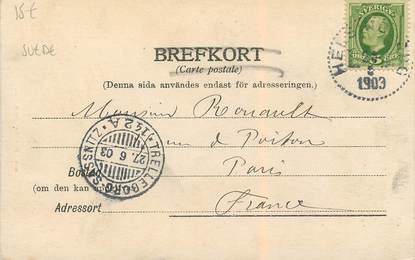 15€
SUEDE
SVERIGE
5
ÖRE
1903
BREFKORT
(Carte postale)
(Denna sida användes endast för adresseringen.)
Monsieur Renault
de Poitou
Bostad
Paris
(om den kan
France
Adressort
TRELLEBORG-SASSNITZ
142 A
27. 6. 03